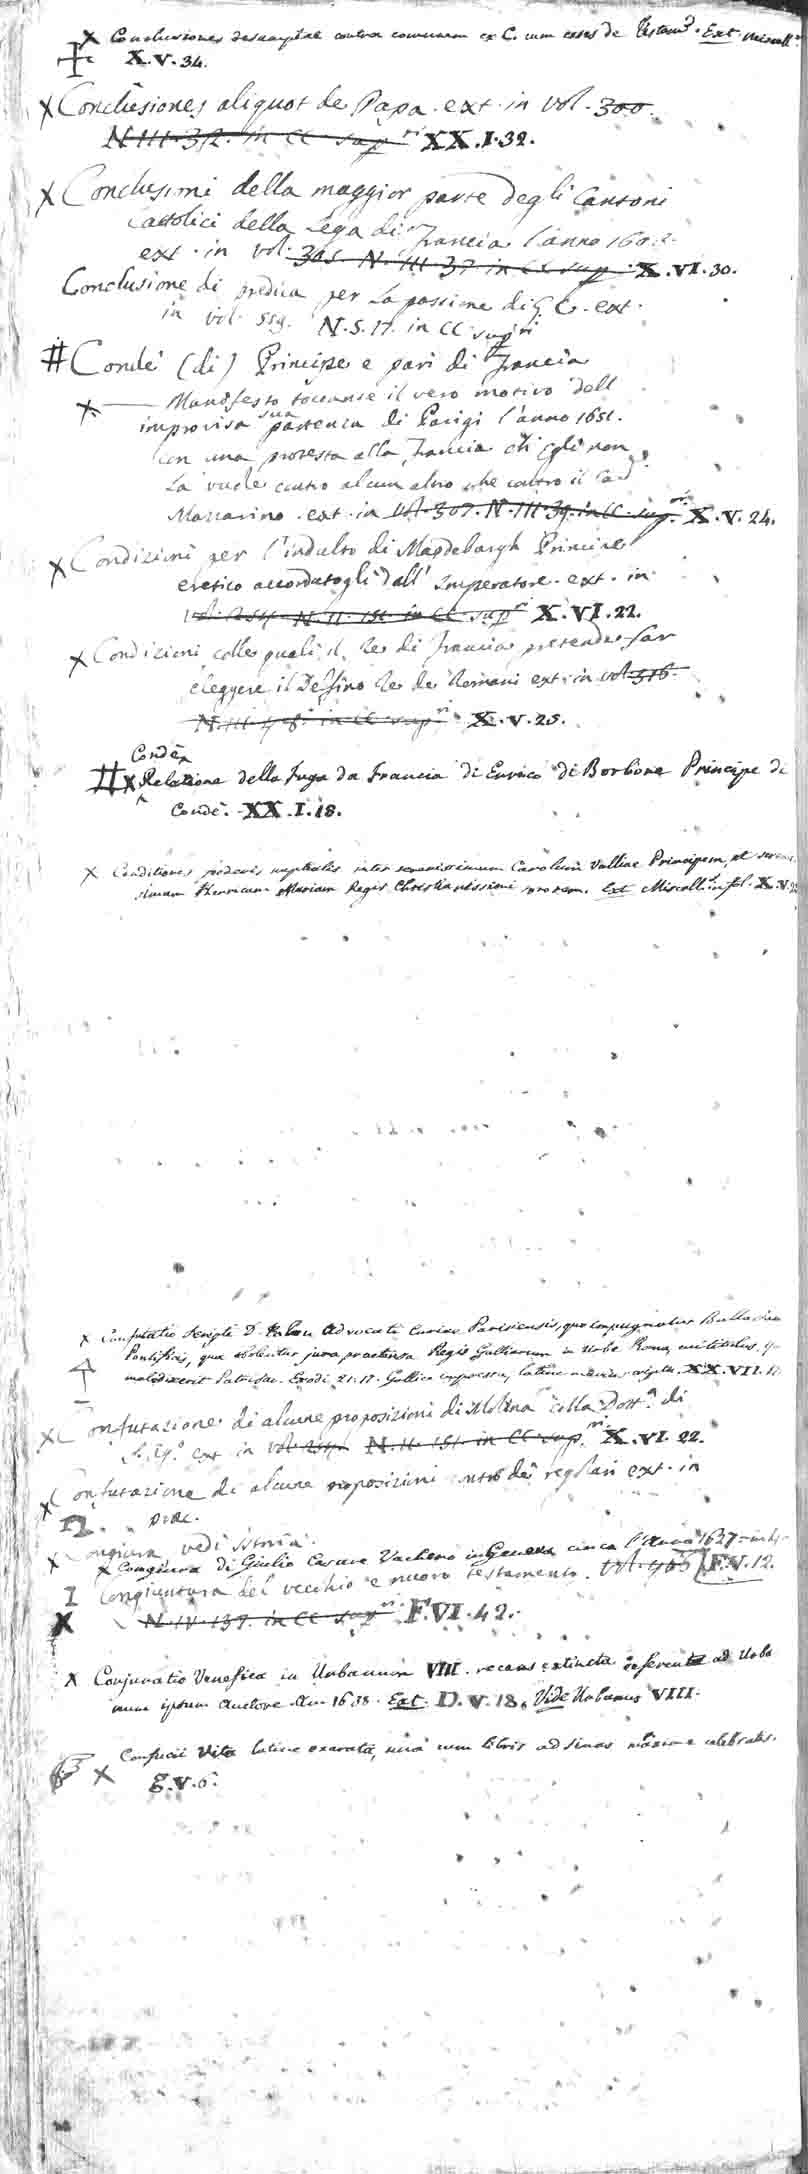 x Conclusiones desumptae contra communem ex C. cum esses de Testam. Ext. Miscell.
X.V.34.
x Conclusiones aliquot de Papa. ext. in vol. 300.
N. III. 312. in CC. sup.ri XX.I.32.
x Conclusioni della maggior parte degli Cantoni
Cattolici della Lega di Francia l'anno 1602.
ext. in vol. 305. N. III. 37. in CC. sup. X.VI.30.
Conclusione di predica per la passione di G. C. ext.
in vol. 559. N. 5. 17. in CC. sup.ri
# Condé (di) Principe e pari di Francia
x — Manifesto toccante il vero motivo dell
improvisa sua partenza di Parigi l'anno 1651.
con una protesta alla Francia ch'egli non
la vuole contro alcun altro che contro il Card.
Mazzarino. ext. in vol. 307. N. III. 39. in CC. sup.ri X.V.24.
x Condizioni per l'indulto di Magdeburgh Principe
eretico accordatogli dall' Imperatore. ext. in
vol. 254. N. II. 151. in CC. sup.ri X.VI.22.
x Condizioni colle quali il Re di Francia pretende far
eleggere il Delfino Re de Romani ext. in vol. 316.
N. III. 48. in CC. sup.ri X.V.25.
Condè
# x Relazione della fuga da Francia di Enrico di Borbone Principe di
Condè. XX.I.18.
x Conditiones foederis nuptialis inter serenissimum Carolum Valliae Principem, et serenis
simam Henricam Mariam Regis Christianissimi sororem. Ext. Miscell. in fol. X.V.
x Confutatio scripti D. Talon Advocati Curiae Parisiensis, quo impugnatur Bulla
Pontificis, qua abolentur jura praetensa Regis Galliarum in Urbe Roma,
maledixerit Patri suo. Exodi 21.17. Gallice impressa, latine scripta. XX.VII.
x Confutazione di alcune proposizioni di Molina colla Dott.a di
S. ext in vol. 254. N. II. 151. in CC. sup.ri X.VI.22.
x Confutazione di alcune proposizioni contro de' regolari ext. in
x Congiura vedi Istoria.
x Congiura di Giulio Cesare Vachero in Genova circa l'Anno 1627. in 4. F.V.12.
Congiuntura del vecchio e nuovo testamento. vol. 465
x N. IV. 137. in CC. sup.ri F.VI.42.
x Conjuratio Venefica in Urbanum VIII. recens extincta ad Urba
num ipsum Auctore An 1638. Ext. D.V.18. Vide Urbanus VIII.
x Confucii Vita latine exarata, una cum libris ad sinas maxime celebratis.
g.V.6.